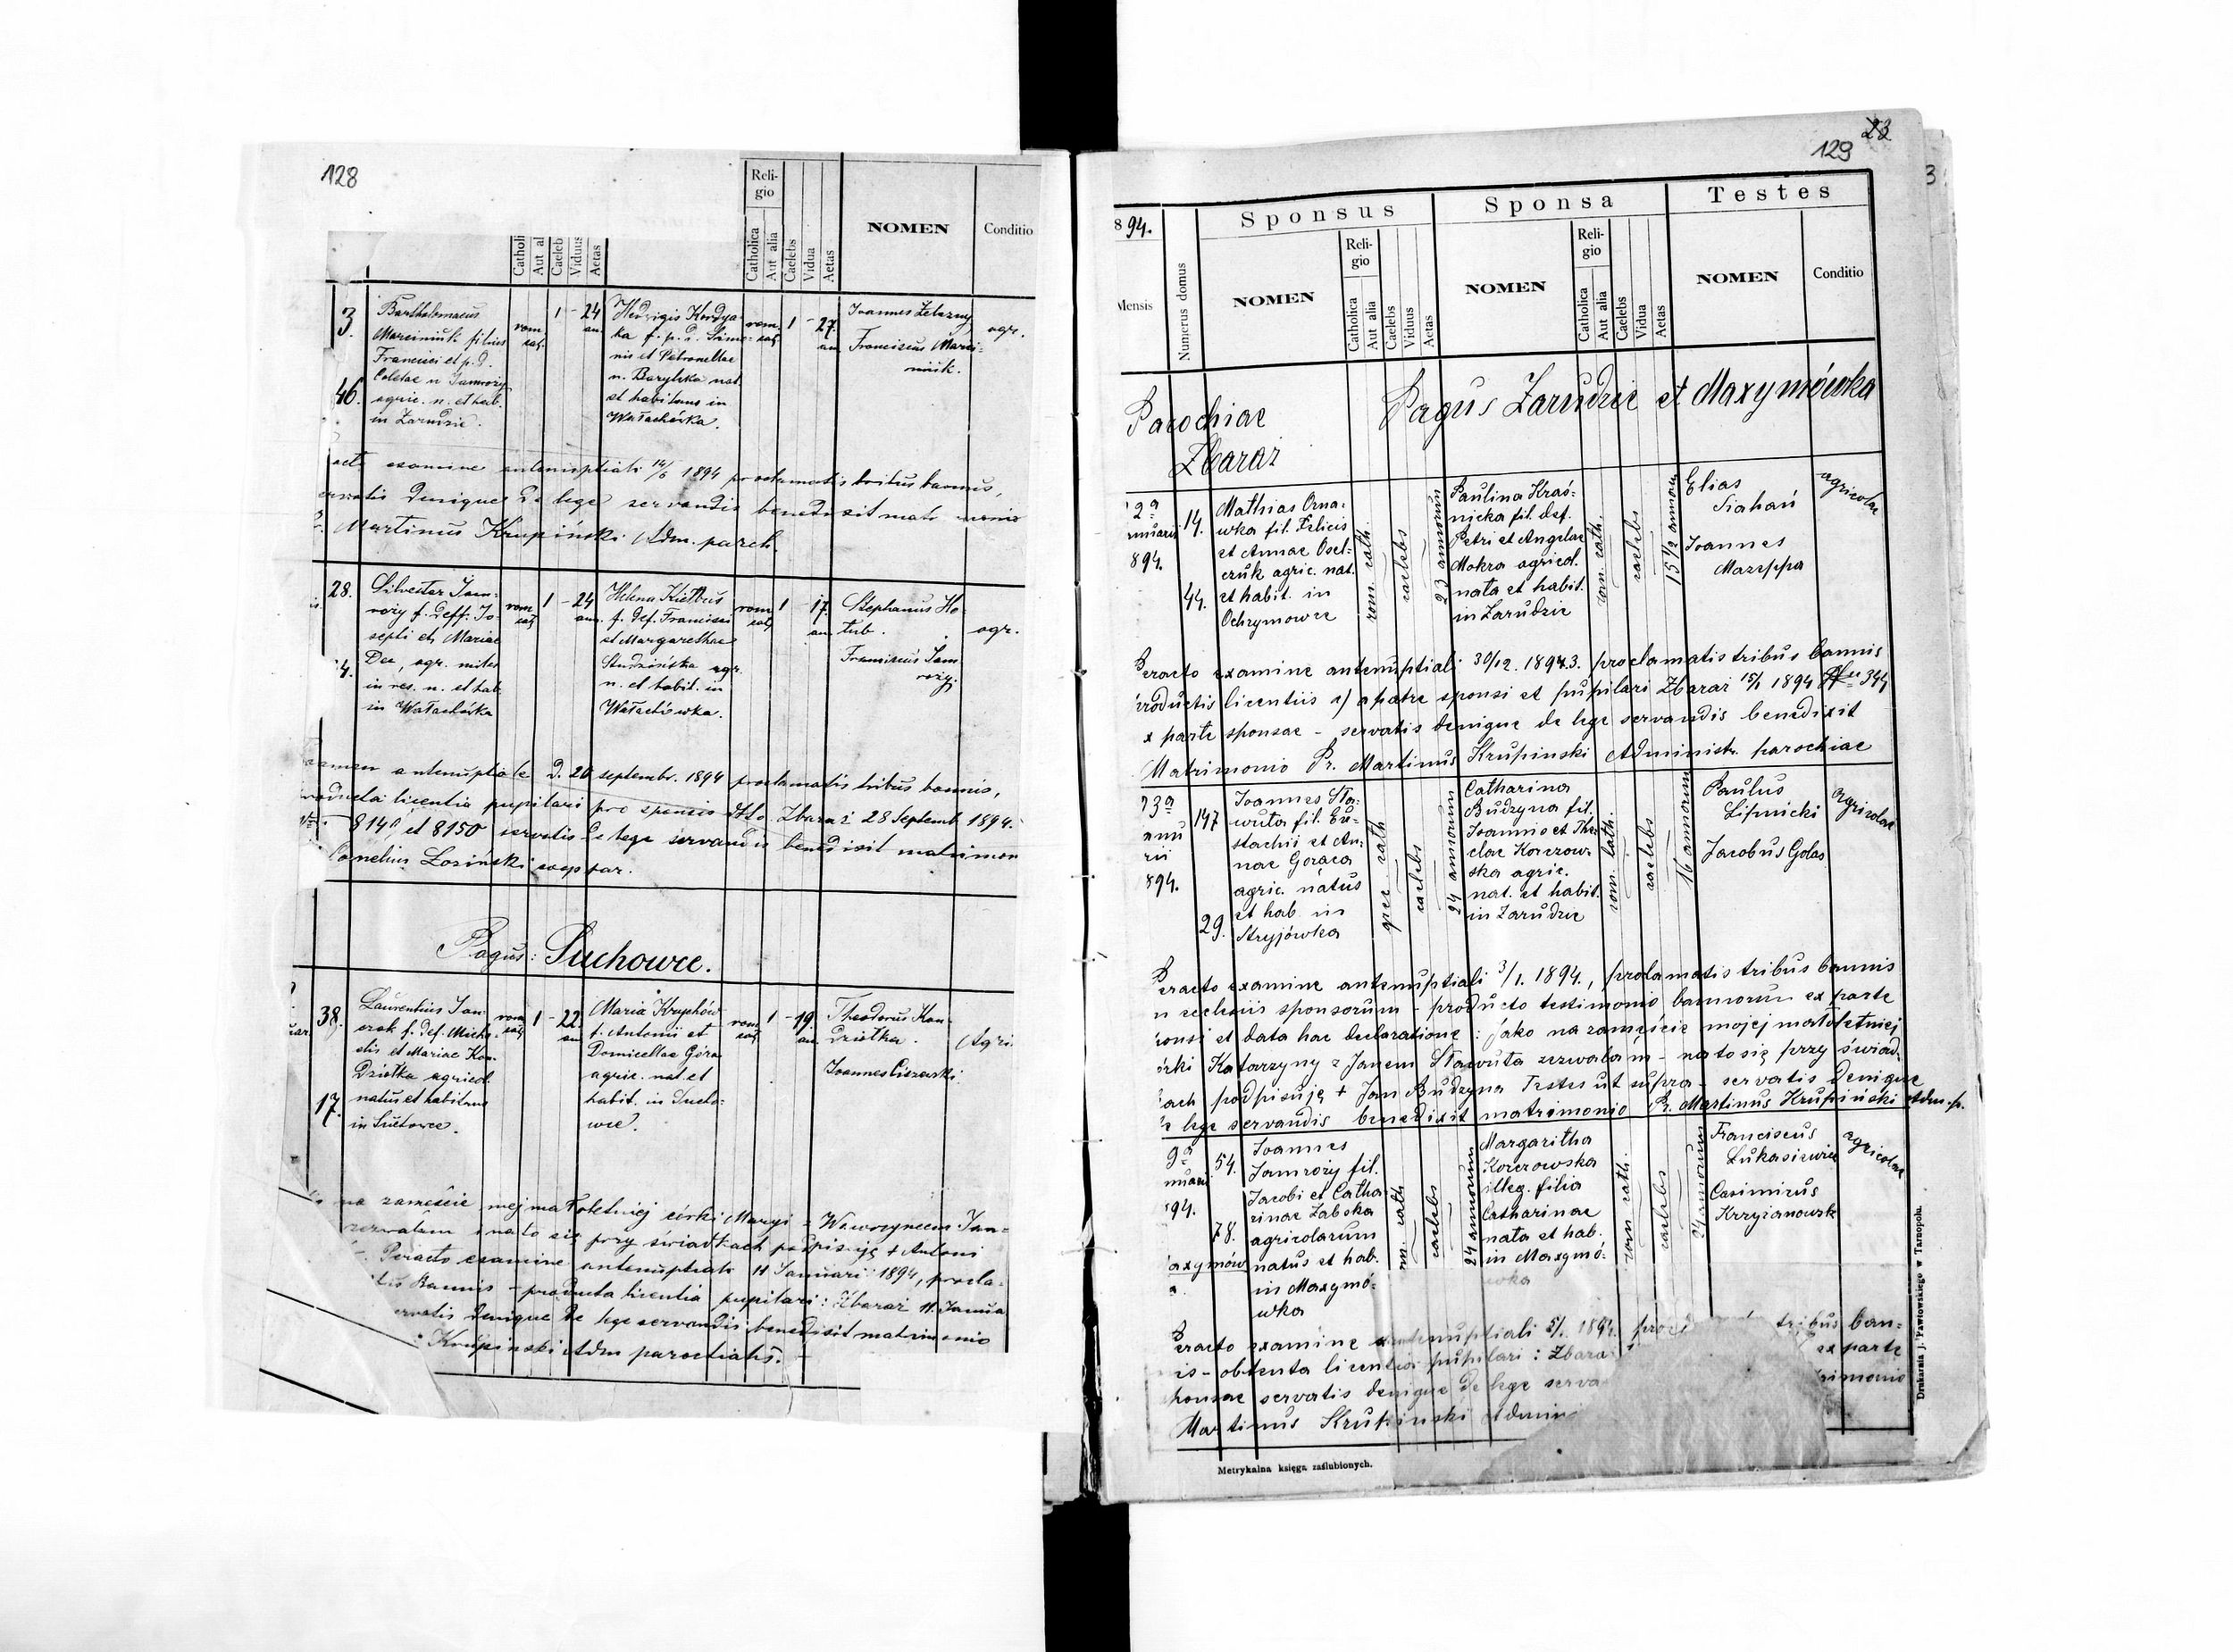 128
Religio
NOMEN
Conditio
Catholi
Aut al
Caeleb
Viduus
Aetas
Catholica
Aut alia
Caelebs
Vidua
Aetas
3.
46.
Bartholomaeus
Marciniuk filius
Francisci et p. d.
Coletae n Jamroży
agric. n. et hab.
in Zarudzie.
rom. cat.
1 - 24 an.
Hedvigis Kordya
ka f. p. d. Simo-
nis et Petronellae
n. Baryłska nat.
et habitans in
Wałachówka.
rom. cat.
1 - 27. an.
Joannes Żelazny
Franciscus Marci-
niuk.
agr.
acto examine antenuptiali 14/6 1894 proclamatis tribus bannis,
servatis denique de lege servandis benedixit
Martinus Krupiński Adm. paroch.
28.
4.
Silvester Jam-
roży f. deff. Jo-
sephi et Mariae
Dec, agr. miles
in res. n. et hab.
in Wałachówka
rom cat
1 - 24 an.
Helena Kiełbus
f. def. Francisci
et Margarethae
Studzińska agr.
n. et habit. in
Wałachówka.
rom cat
1 17. an.
Stephanus Ho-
łub.
Franciscus Jam
roży.
agr.
examen antenuptiale d. 20 septembr. 1894 proclamatis tribus bannis,
producta licentia pupilari pro sponsis Zbaraż 28 Septemb 1894.
et 8150 servatis de lege servandis benedixit matrimon
Cornelius Łosiński coop par.
Pagus: Suchowce.
38.
17.
Laurentius Jan
czak f. def. Micha
elis et Mariae Kon-
dziołka agricol.
natus et habitans
in Suchowce.
rom cat
1 - 22. an
Maria Krychów
f. Antonii et
Domicellae Góra
agric. nat. et
habit. in Sucho-
wce.
rom cat
1 - 19. an.
Theodorus Kon-
dziołka.
Joannes Ciszewski
Agri.
na zamęście mej małoletniej córki Maryi z Wawrzyńcem Jan-
zezwalam i na to się przy świadkach podpisuję + Antoni
Peracto examine antenuptiali 11 Januari 1894, procla-
Bannis - producta licentia pupilari: Zbaraż 11. Janua
servatis denique de lege servandis benedixit matrimonio
Krupinski Adm parochialis.
23
129
3
894.
Mensis
Numerus domus
Sponsus
Sponsa
Testes
NOMEN
Religio
Catholica
Aut alia
Caelebs
Viduus
Aetas
NOMEN
Religio
Catholica
Aut alia
Caelebs
Vidua
Aetas
NOMEN
Conditio
Parochiae
Zbaraż
Pagus Zarudzie et Maxymówka
2a
nuarii
894.
14.
44.
Mathias Orna-
wka fil. Felicis
et Annae Osel-
czuk agric. nat.
et habit. in
Ochrymowce
rom. cath.
caelebs
23 annorum
Paulina Kraś-
nicka fil. def.
Petri et Angelae
Mokra agricol.
nata et habit.
in Zarudzie
rom. cath.
caelebs
15 1/2 annorum
Elias
Siahań
Joannes
Mazeppa
agricolae
Peracto examine antenuptiali 30/12. 1893. proclamatis tribus bannis
productis licentiis a) a patre sponsi et pupilari Zbaraż 15/1 1894 344
x parte sponsae - servatis denique de lege servandis benedixit
Matrimonio Pr. Martinus Krupinski Administr. parochiae
23a
anu
rii
894.
147
29.
Joannes Sta-
wuta fil. Eu-
stachii et An-
nae Goraca
agric. natus
et hab. in
Stryjówka
grec. cath
caelebs
24 annorum
Catharina
Budzyna fil.
Joannis et The
clae Korczow-
ska agric.
nat. et habit.
in Zarudzie
rom. cath.
caelebs
16 annorum
Paulus
Lipnicki
Jacobus Golas
agricolae
Peracto examine antenuptiali 3/1. 1894., proclamatis tribus bannis
n ecclesiis sponsorum - producto testimonio bannorum ex parte
sponsi et data hac declaratione: jako na zamęście mojej małoletniej
órki Katarzyny z Janem Stawuta zezwalam - na to się przy świad-
kach podpisuję + Jan Budzyna Testes ut supra - servatis denique
de lege servandis benedixit matrimonio Pr. Martinus Krupiński Adm. p.
9a
nuarii
94.
axymów
54.
78.
Joannes
Jamroży fil.
Jacobi et Catha
rinae Zabska
agricolarum
natus et hab.
in Maxymó-
wka
m. cath
caelebs
24 annorum
Margaritha
Korczowska
illeg. filia
Catharinae
nata et hab.
in Maxymó-
wka
rom cath.
caelebs
24 annorum
Franciscus
Łukasiewicz
Casimirus
Krzyżanowsk
agricolae
Peracto examine antenuptiali 5/1. 1894. tribus ban-
is - obtenta licentia pupilari: Zbara ex parte
sponsae servatis denique de lege serva trimonio
Martinus Krupinski Admini
Metrykalna księga zaślubionych.
Drukarnia J. Pawłowskiego w Tarnopolu.